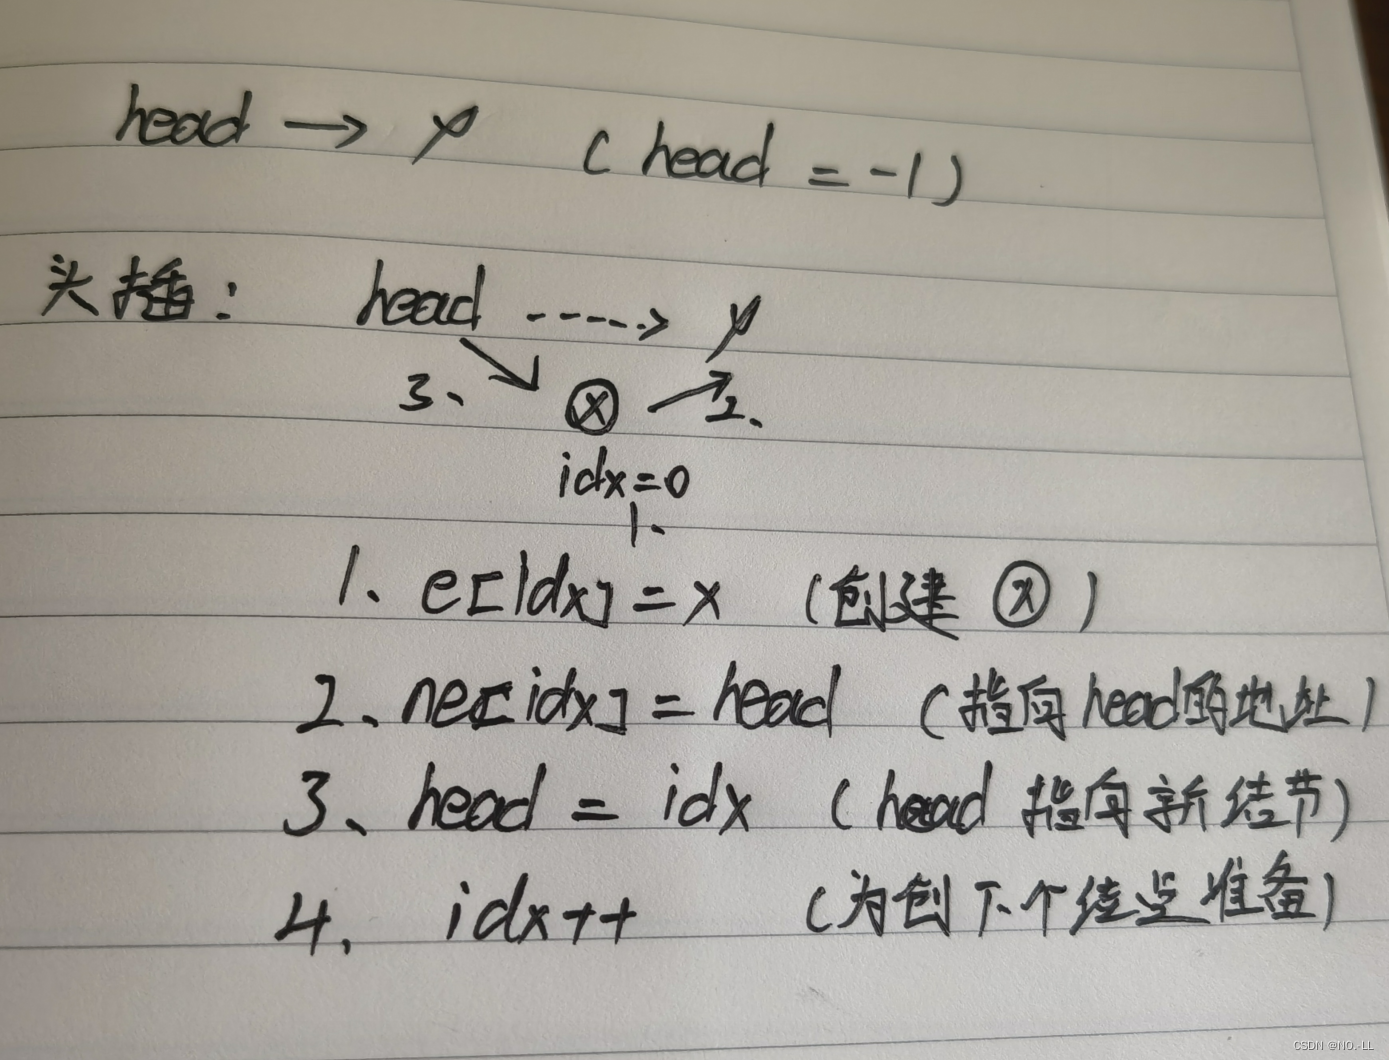 head → ∅ ( head = -1 )
头插： head ----> ∅
3、 ⓧ 2、
idx=0
1、
1、e[idx] = x （创建 ⓧ ）
2、ne[idx] = head （指向head的地址）
3、head = idx （head 指向新结节）
4、idx++ （为创下个结点准备）
CSDN @NO.-LL